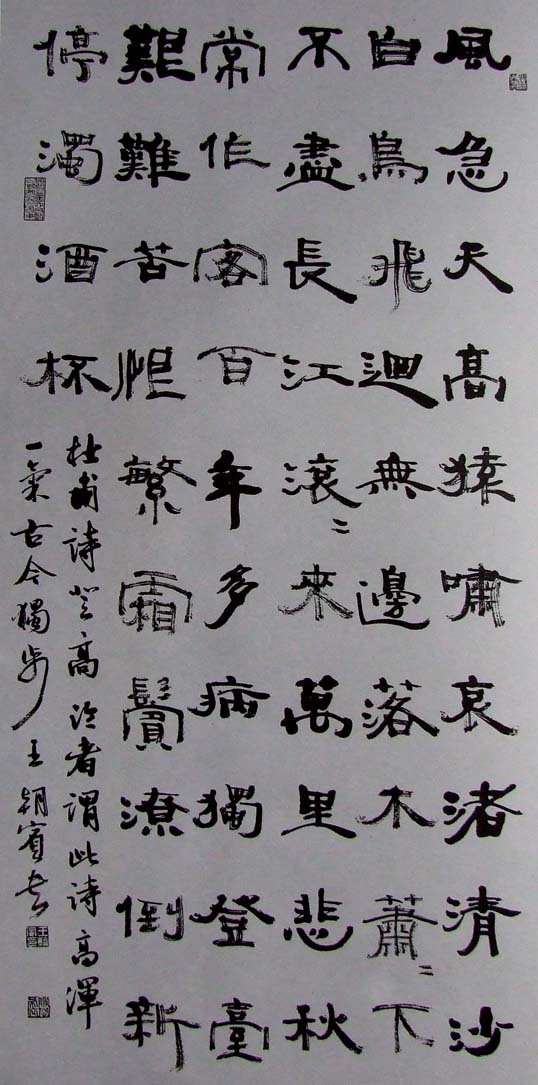 風急天高猿嘯哀渚清沙
白鳥飛迴無邊落木蕭〻下
不盡長江滾〻來萬里悲秋
常作客百年多病獨登臺
艱難苦恨繁霜鬢潦倒新
停濁酒杯
杜甫詩登高論者謂此詩高渾
一氣古今獨步王朝賓書